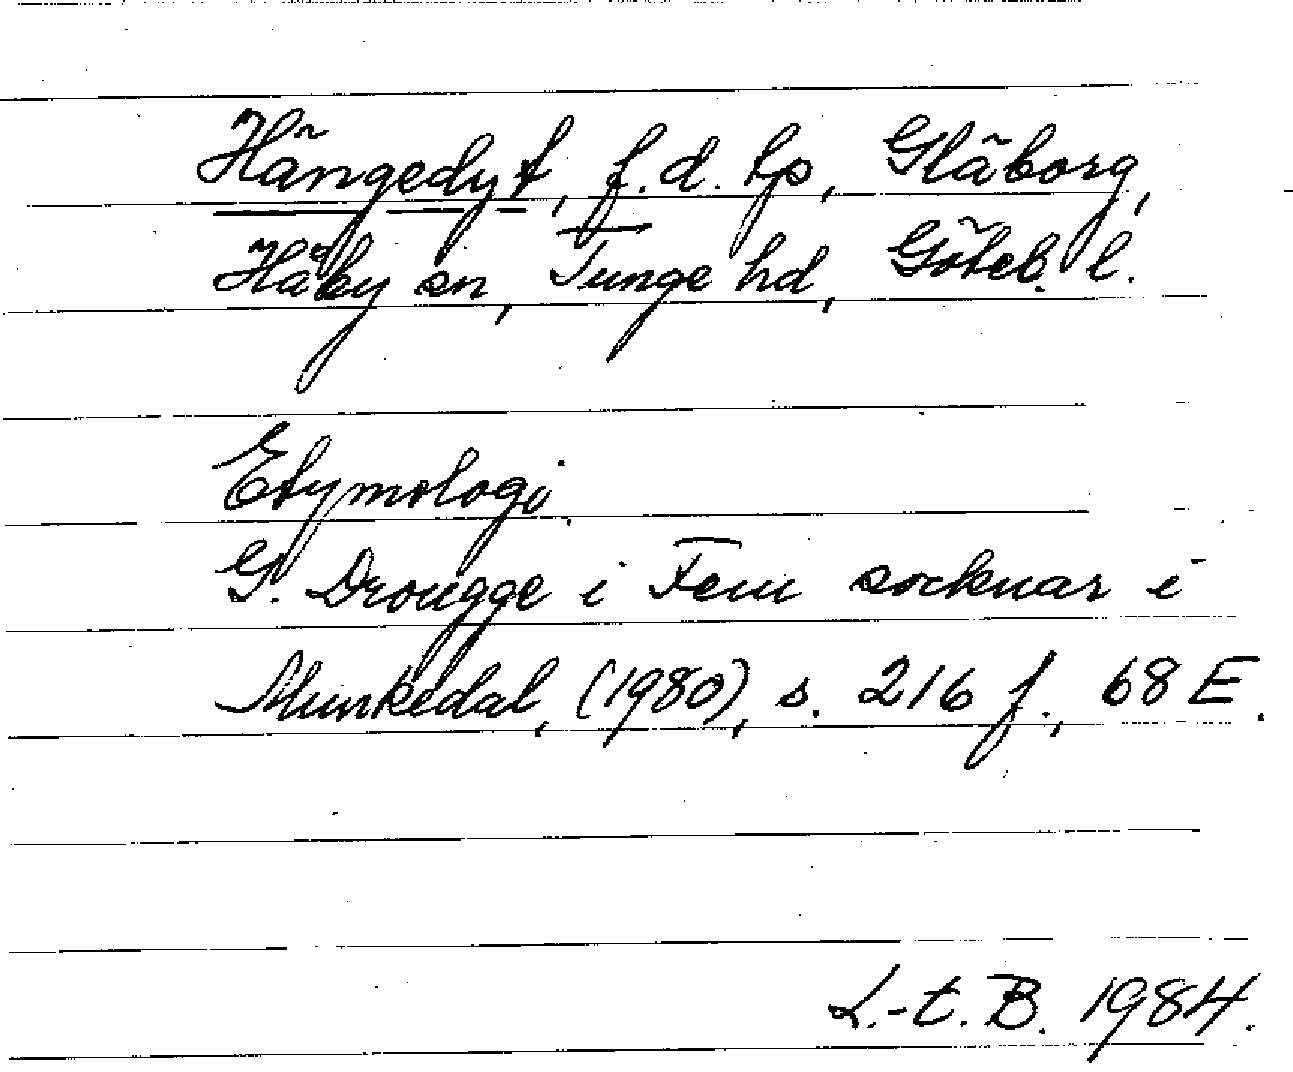 Hängedyt, f.d. tp, Gläborg,
Håby sn, Tunge hd, Göteb. l.
Etymologi.
G. Drougge i Fem socknar i
Munkedal, (1980), s. 216 f., 68 E.
L.-t. B. 1984.